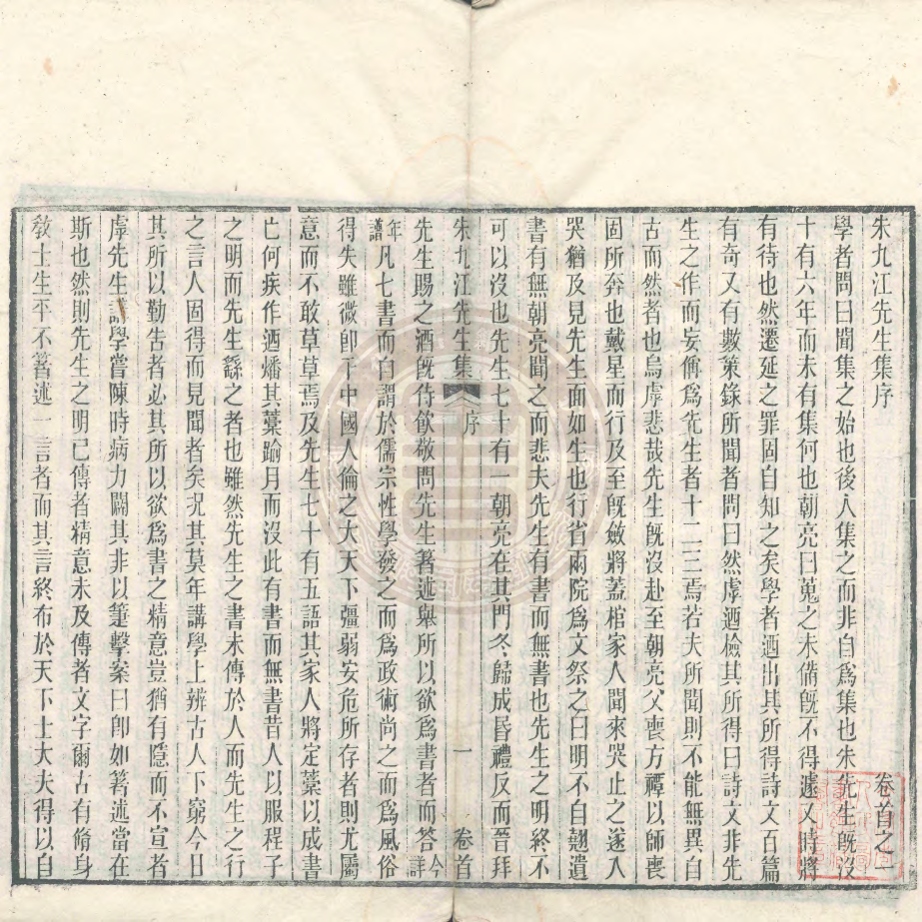 朱九江先生集序 卷首之一
學者問曰聞集之始也後人集之而非自爲集也朱先生旣沒
十有六年而未有集何也朝亮曰蒐之未備旣不得遽又時將
有待也然遷延之罪固自知之矣學者迺出其所得詩文百篇
有奇又有數策錄所聞者問曰然虖迺檢其所得曰詩文非先
生之作而妄偁爲先生者十二三焉若夫所聞則不能無異自
古而然者也烏虖悲哉先生旣沒赴至朝亮父喪方禫以師喪
固所奔也戴星而行及至旣斂將蓋棺家人聞來哭止之遂入
哭猶及見先生面如生也行省兩院爲文祭之曰明不白翹遺
書有無朝亮聞之而悲夫先生有書而無書也先生之明終不
可以沒也先生七十有一朝亮在其門冬歸成昏禮反而晉拜
朱九江先生集 序 一 卷首
先生賜之酒旣侍欲敬問先生箸述舉所以欲爲書者而答今詳
年譜凡七書而自謂於儒宗性學發之而爲政術尚之而爲風俗
得失雖微卽于中國人倫之大天下彊弱安危所存者則尤屬
意而不敢草草焉及先生七十有五語其家人將定藁以成書
亡何疾作迺燔其藁踰月而沒此有書而無書昔人以服程子
之明而先生繇之者也雖然先生之書未傳於人而先生之行
之言人固得而見聞者矣況其莫年講學上辨古人下窮今日
其所以勤告者必其所以欲爲書之精意豈猶有隱而不宣者
虖先生講學嘗陳時病力闢其非以箠擊案曰卽如箸述當在
斯也然則先生之明已傳者精意未及傳者文字爾古有脩身
敎士生平不箸述一言者而其言終布於天下士大夫得以自